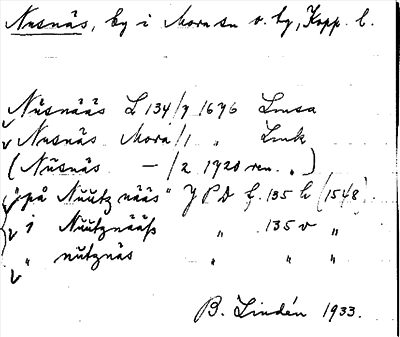 Nusnäs, by i Mora sn o. by, Kopp. l.
Nŭsnääs L 134/7 1676 Lmsa
Nusnäs Mora/1 „ Lmk
(Nŭsnäs — /2 1920 ren. „)
"på Nŭŭtz nääs" JPD f. 135 h (1548).
" i Nŭŭtznääß „ 135 v „
" nŭtznäs „ „ „
B. Lindén 1933.